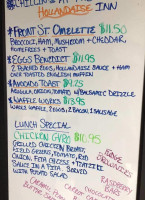 HOLLANDAISE INN
*FRONT ST. OMELETTE $11.50
BROCCOLI, HAM, MUSHROOM + CHEDDAR,
HOMEFRIES + TOAST
*EGGS BENEDICT $11.95
2 POACHED EGGS, HOLLANDAISE SAUCE + HAM
OVER TOASTED ENGLISH MUFFIN
*AVOCADO TOAST $11.25
ONION, TOMATO W/ BALSAMIC DRIZZLE
*WAFFLE WORKS $13.95
WHOLE WAFFLE, 2 EGGS, 2 BACON, 1 SAUSAGE
LUNCH SPECIAL
CHICKEN GYRO $10.95
GRILLED CHICKEN BREAST
MIXED GREENS, TOMATO, RED
ONION, FETA CHEESE + TZATZIKI
SAUCE IN A PITA. SERVED
WITH POTATO SALAD
RASPBERRY
BAR
CARROT CAKE